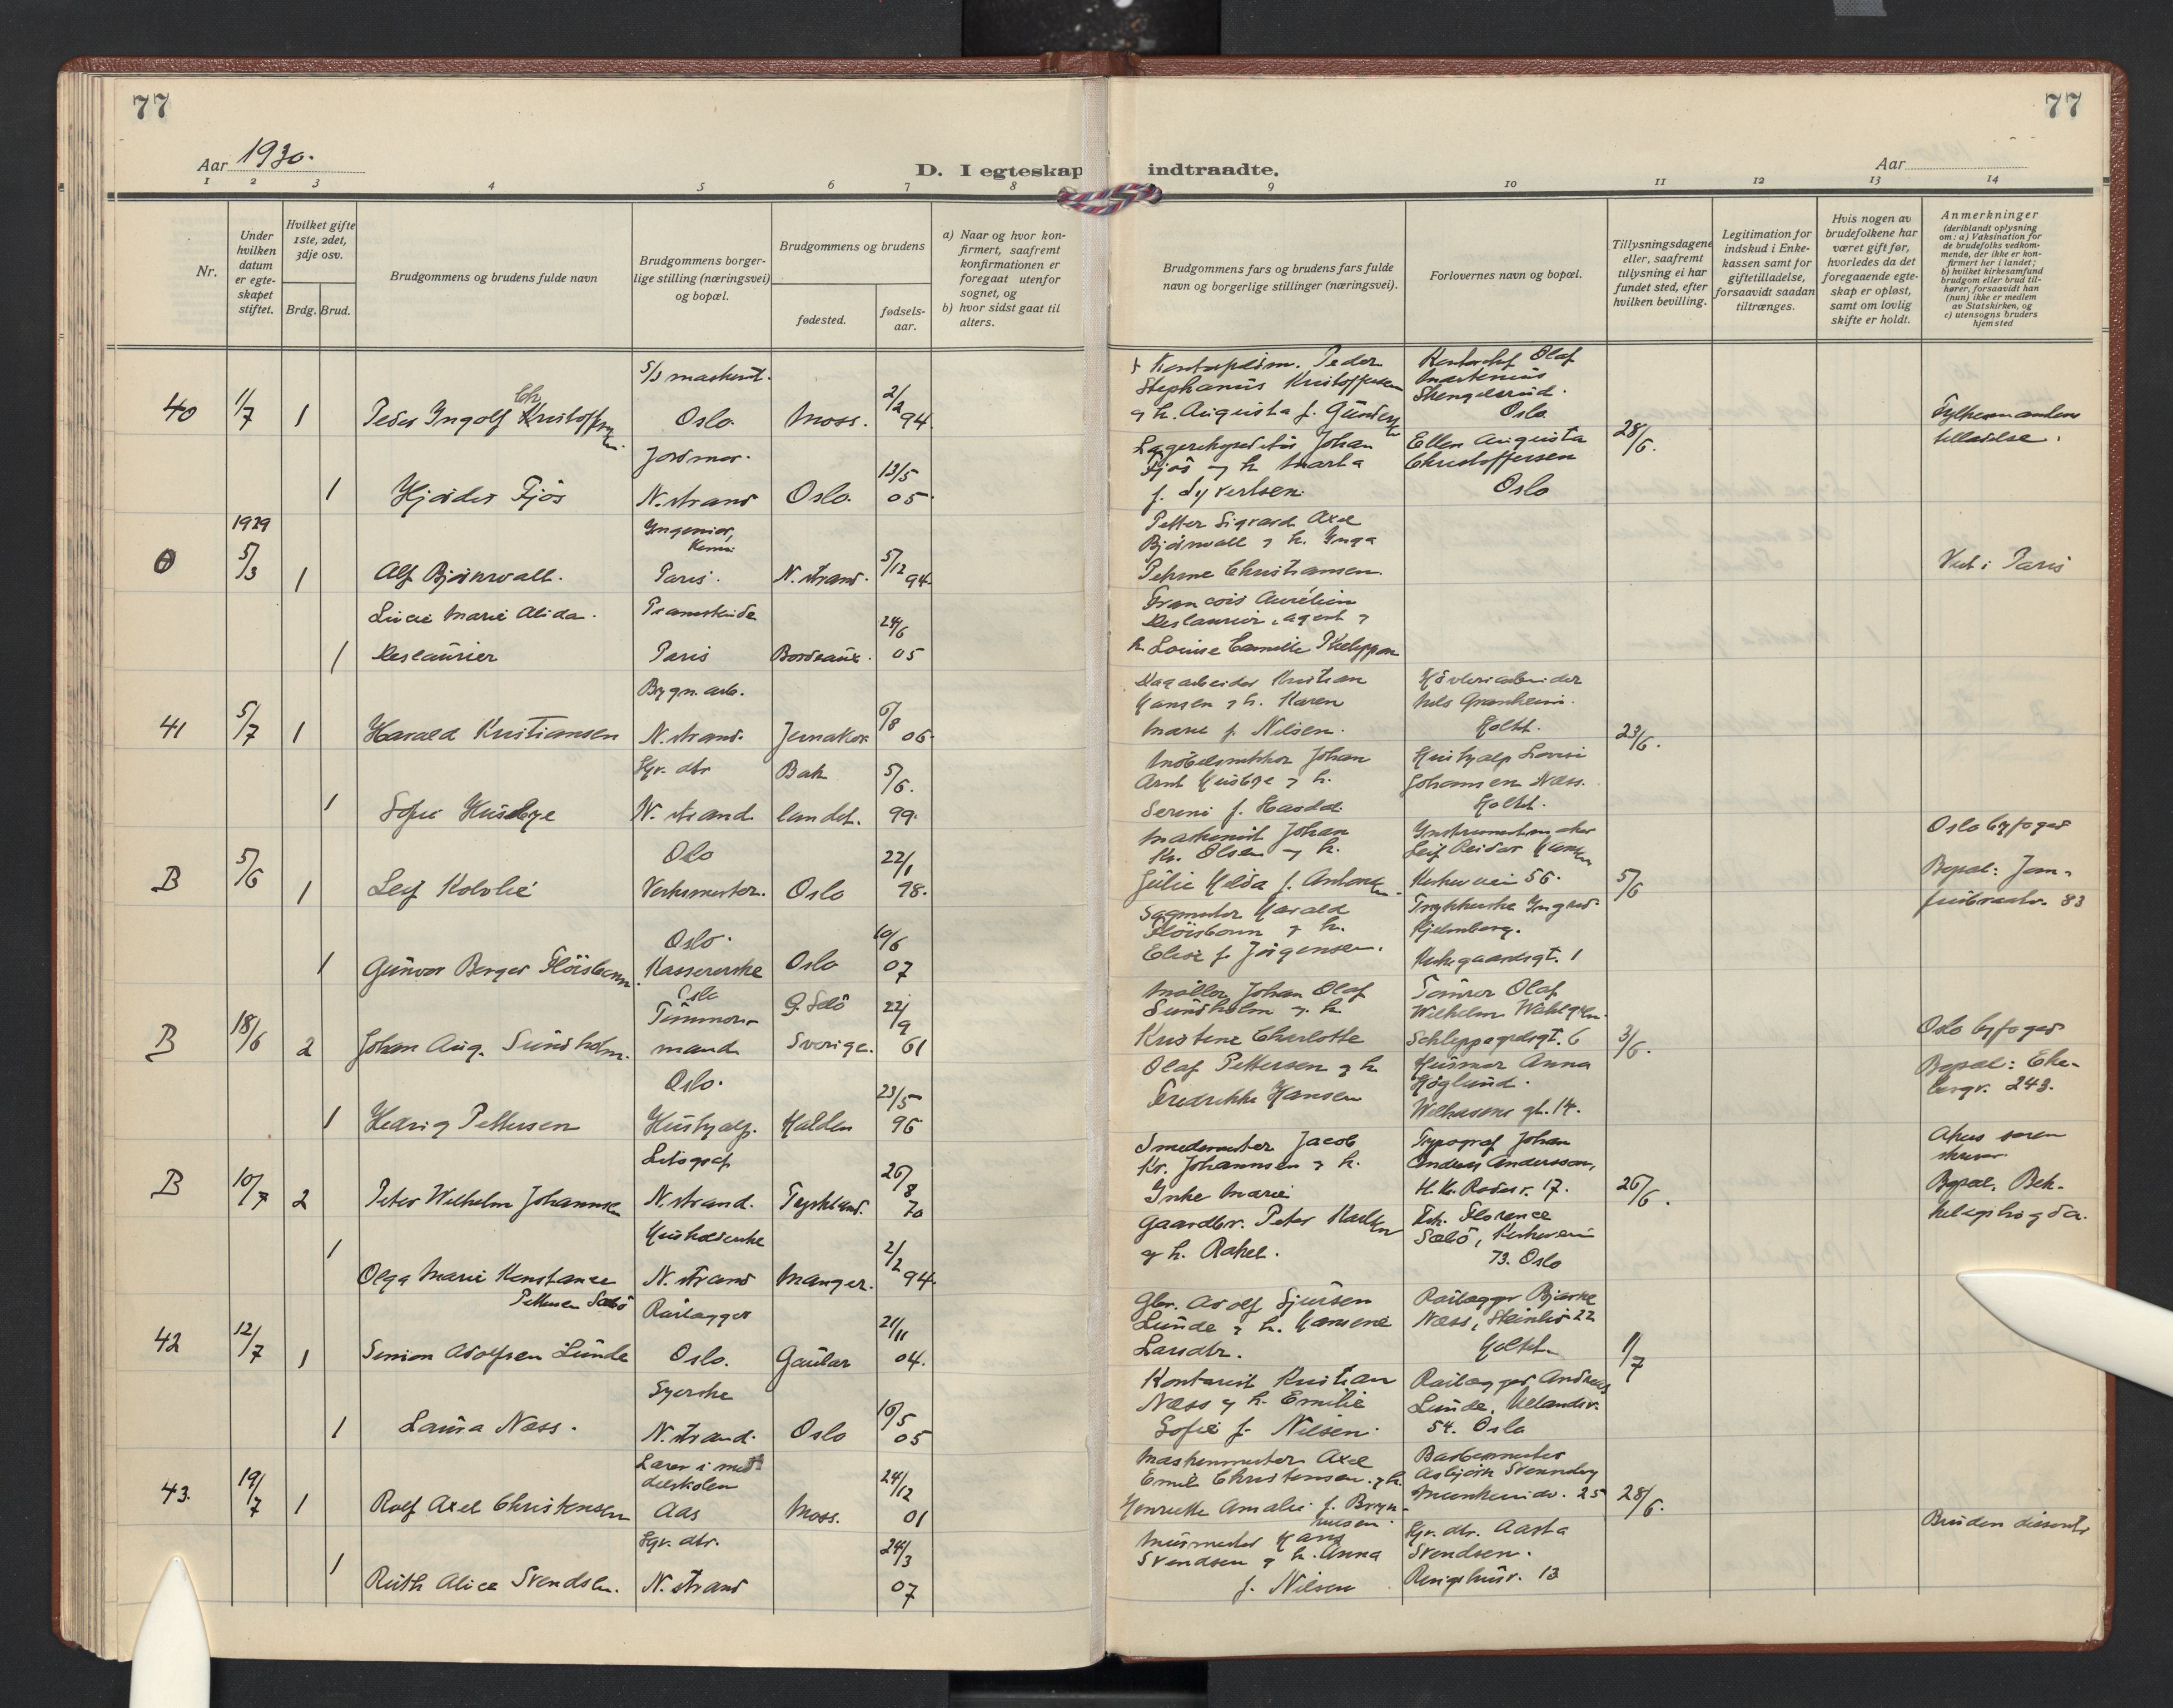 77
77
Aar 1930.
D. I egteskap indtraadte.
Aar
1 2 3 4 5 6 7 8 9 10 11 12 13 14
Nr.
Under hvilken datum er egte-skapet stiftet.
Hvilket gifte 1ste, 2det, 3dje osv.
Brdg. Brud.
Brudgommens og brudens fulde navn
Brudgommens borger-lige stilling (næringsvei) og bopæl.
Brudgommens og brudens
fødested.
fødsels-aar.
a) Naar og hvor kon-firmert, saafremt konfirmationen er foregaat utenfor sognet, og
b) hvor sidst gaat til alters.
Brudgommens fars og brudens fars fulde navn og borgerlige stillinger (næringsvei).
Forlovernes navn og bopæl.
Tillysningsdagene eller, saafremt tillysning ei har fundet sted, efter hvilken bevilling.
Legitimation for indskud i Enke-kassen samt for giftetilladelse, forsaavidt saadan tiltrænges.
Hvis nogen av brudefolkene har været gift før, hvorledes da det foregaaende egte-skap er opløst, samt om lovlig skifte er holdt.
Anmerkninger (deriblandt oplysning om: a) Vaksination for de brudefolks vedkom-mende, der ikke er kon-firmert her i landet; b) hvilket kirkesamfund brudgom eller brud til-hører, forsaavidt han (hun) ikke er medlem av Statskirken, og c) utensogns bruders hjemsted
40 1/7 1 Peder Ingolf Kristoffersen Oslo. Moss. 2/2 94.
Peder Stephanus Kristoffersen
g h. Augusta f. Gundersen
Olaf Martinius Stengelsrud. Oslo
28/6.
Fylkesmandens tilladelse.
1 Hjördis Fjös Jordmor. N. strand Oslo. 13/5 05.
Johan Fjös g h Marta f. Syvertsen.
Ellen Augusta Christoffersen Oslo
1929 5/3 1 Alf Björnvall. Ingeniör, Kemi. Paris. N. strand. 5/12 94.
Petter Sigvard Axel Björnvall g h. Inga Petrine Christiansen.
Viet i Paris
1 Lucie Marie Alida Deslaurier Paris Bordeaux. 24/6 05
Francois Aurélien Deslaurier, agent g h. Louise Camille
41 5/7 1 Harald Kristiansen Bygn. arb. N. strand. Jernakor. 6/8 06.
Kristian Hansen g h. Karen Marie f. Nilsen.
Nils Granheim. Holtet.
23/6.
1 Sofie Husebye Hgr. dtr N. strand Bakke landet. 5/6. 99.
Johan Arnt Husebye g h. Serine f.
Hushjelp Lovise Johansen Næss. Holtet.
B 5/6 1 Leif Kolvlie Oslo Verksmester. Oslo 22/1 98.
Maskinist Johan Kr. Olsen g h. Julie Hilda f. Antonsen.
Instrumentmaker Leif Reidar Hansen Kirkeveien 56.
5/6
Oslo byfoged Bopæl: 83
1 Gunvor Berger Flöisbonn Oslo. Kassererske Oslo 10/6 07
Sagmester Harald Flöisbonn g h. Elise f. Jörgensen.
Kirkegaardsgt. 1
B 18/6 2 Johan Aug. Sundholm. Oslo Tömmer-mand Sverige. 22/9 61
Möller Johan Olof Sundholm g. h. Kristine Charlotte
Tömrer Olaf Wilhelm Schleppegrellsgt. 6
3/6.
Oslo byfoged Bopæl: Eke-bergv. 243.
1 Hedvig Pettersen Oslo. Hushjelp. Halden 23/5 96
Olaf Pettersen g h Fredrikke Hansen
Husmor Anna Höglund. Wilhelms gt. 14.
B 10/7 2 Peter Wilhelm Johannsen Litograf N. strand. Tyskland. 26/8 70
Smedemester Jacob Kr. Johannsen g h. Inke Marie
Typograf Johan Andreas Andersson, H. Kr. Rodes v. 17.
26/6.
Akers soren skriver Bopæl. Bek-kelagshögda.
1 Olga Marie Konstance Pettersen Sæbö Husholderske N. strand Manger. 2/2 94.
Gaardbr. Peter Karlsen g h. Rakel.
Frk. Florence Sæbö, Kirkeveien 73. Oslo
42 12/7 1 Simon Adolfsen Lunde Rörlægger Oslo. Gaular 21/11 04.
Gbr. Adolf Sjursen Lunde g h. Hansine Larsdtr.
Rörlægger Bjarne Næss, Steinliv 22 Holtet.
11/7
1 Laura Næss. Syerske N. strand. Oslo 16/5 05
Kontorist Kristian Næss g h. Emilie Sofie f. Nilsen.
Rörlægger Andreas Lunde, Uelandsv. 54. Oslo
43. 19/7 1 Rolf Axel Christensen Lærer i middelskolen Aas Moss. 24/12 01
Maskinmester Axel Emil Christensen. g h. Henriette Amalie f. Brynildsen.
Barbermester Asbjörn Svenneby 25
28/6.
Bruden dissenter
1 Ruth Alice Svendsen. Hgr. dtr. N. strand 24/3 07
Murmester Hans Svendsen g h. Anna f. Nilsen
Hgr. dtr. Aasta Svendsen. 13